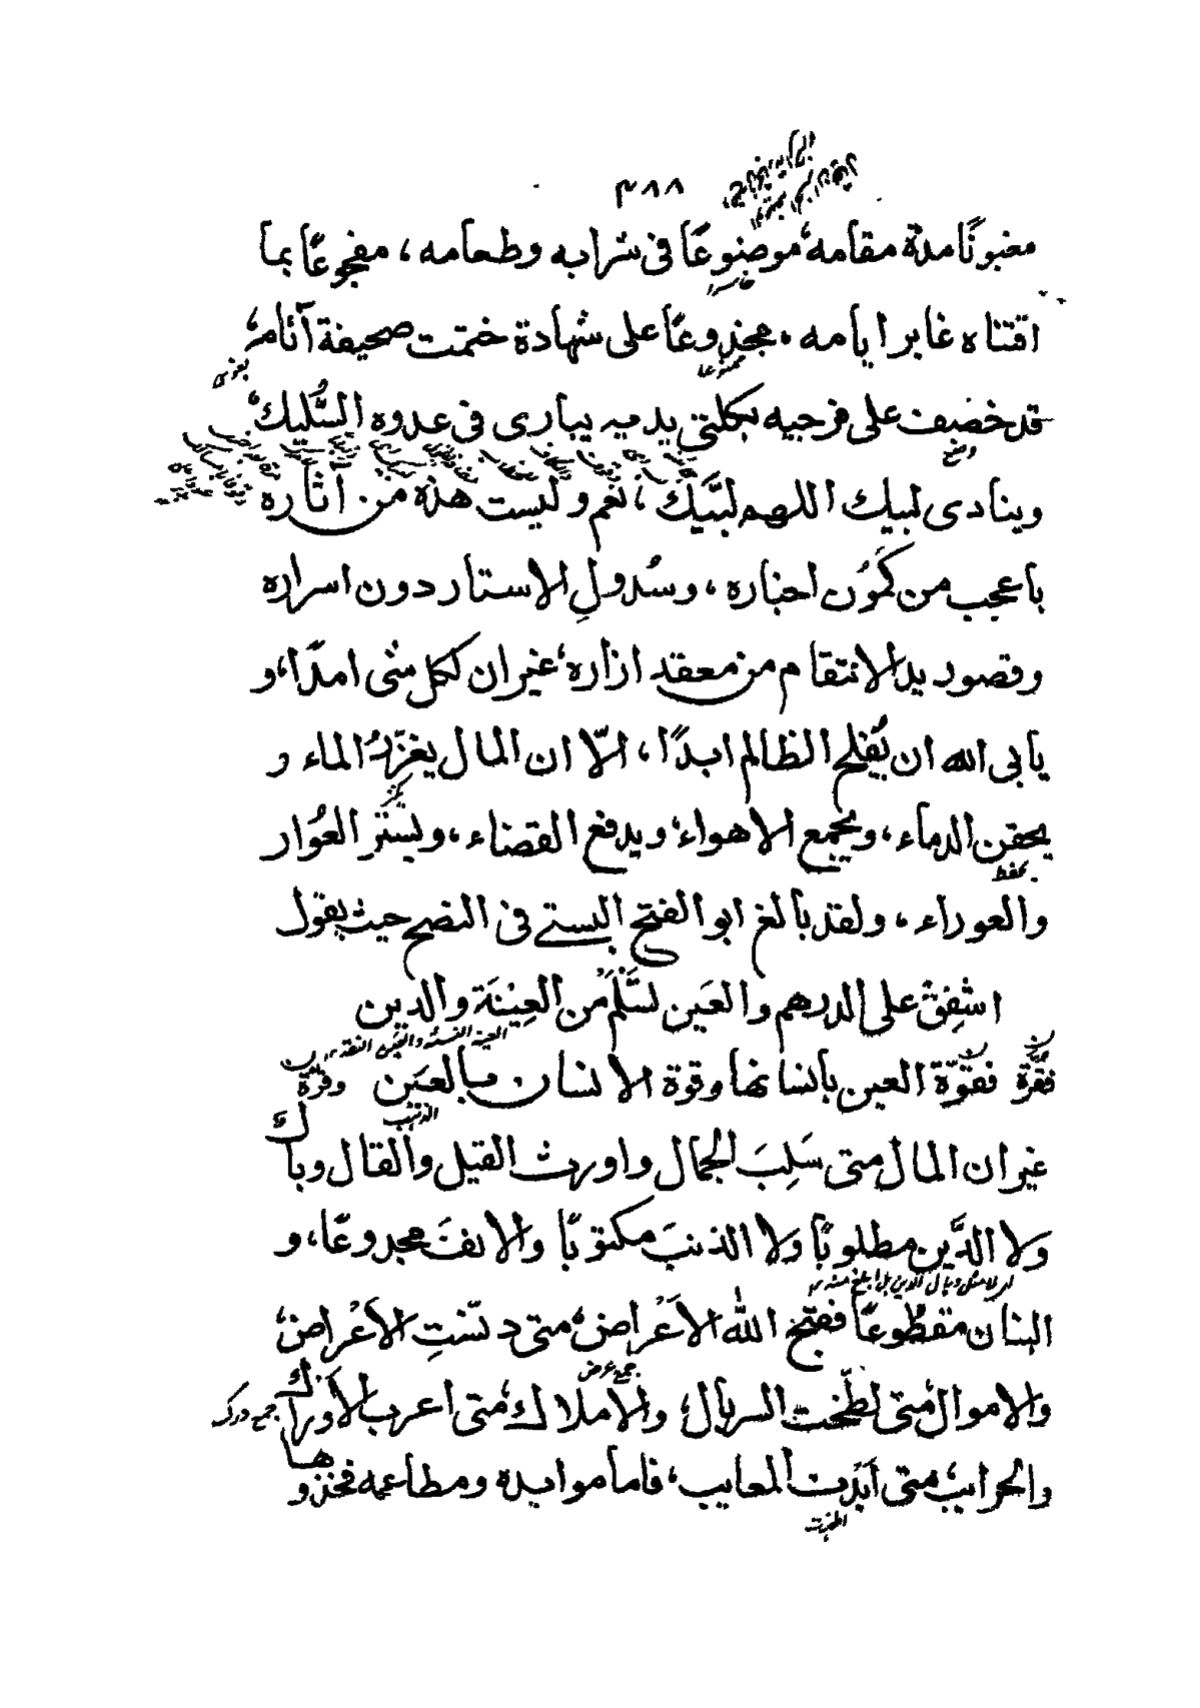 ٣٨٨
مغبونًا مدة مقامه، موضوعًا فى شرابه وطعامه، مفجوعًا بما
خاسرا
اقتناه غابر ايامه، مجذوعًا على شهادة ختمت صحيفة آثامه،
ممنوعا
قد خصف على فرجيه بكلتى يديه يبارى فى عدوه السُّليك،
وينادى لبيك اللهم لبَّيك، نعم وليست هذه من آثاره
باعجب من كمُون اخباره، وسُدولِ الاستار دون اسراره
وقصور يد الانتقام من معقد ازاره، غير ان لكل شى امدًا، و
يابى الله ان يُفلح الظالم ابدًا، الّا ان المال يغزّرُ الماء و
يكثر
يحقن الدماء، ويجمع الاهواء، ويدفع القضاء، ويستر العُوار
يحفظ
والعوراء، ولقد بالغ ابو الفتح البستى فى النصح حيث يقول
اشفِقْ على الدرهم والعَين تسَّلَمْ من العِيْنَة والدين
العينة النسئة والعين النقد
فقوّة العين بانسانها وقوة الانسان بالعَين
غير ان المال متى سَلِبَ الجمال واورث القيل والقال وبال
ولا الدَّين مطلوبًا ولا الذنبَ مكتوبًا والانفَ مجدوعًا، و
البنان مقطوعًا فقبّح الله الاَعْراض، متى دنّستِ الاَعْراض،
جمع عرض
والاموال متى لطّخت السربال، والاملاك، متى اعرب الادراك
جمع درك
والحرائب، متى اَبدَت المعايب، فاما موايده ومطاعمه فخذوها
اظهرت